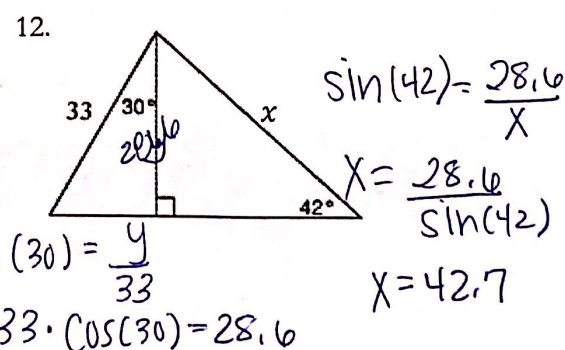 12.
33
30°
x
28.6
y
42°
sin(42) = 28.6/x
x = 28.6/sin(42)
x = 42.7
(30) = y/33
33 · cos(30) = 28.6